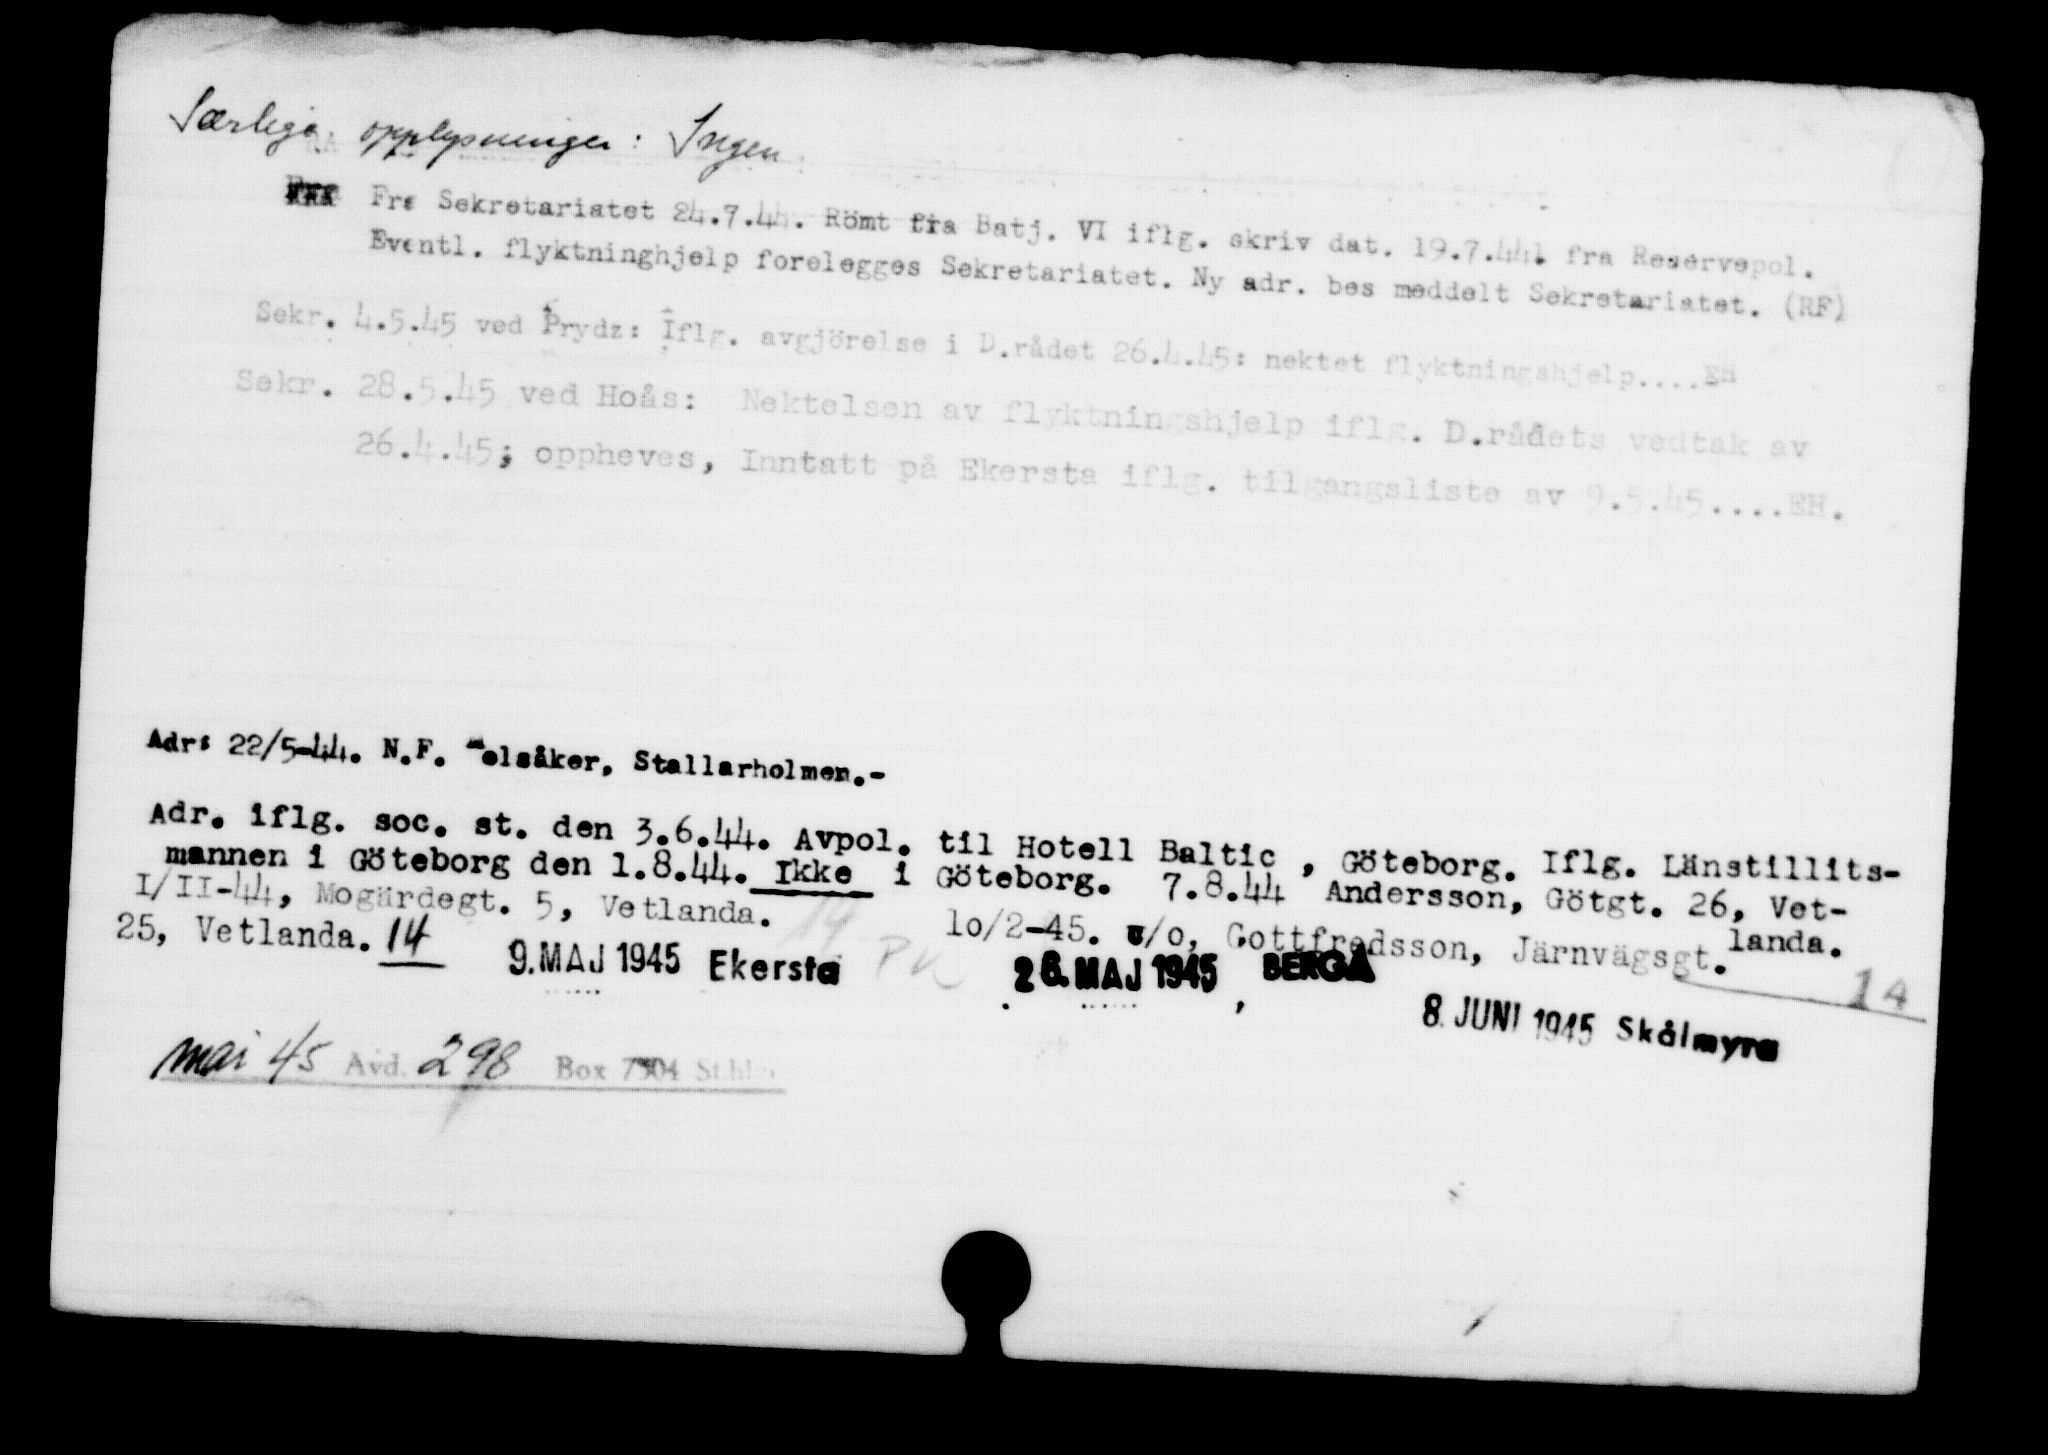 Særlige opplysninger: Ingen
Fra Sekretariatet 24.7.44. Römt fra Batj. VI iflg. skriv dat. 19.7.44. fra Reservepol.
Eventl. flyktninghjelp forelegges Sekretariatet. Ny adr. bes meddelt Sekretariatet. (RF)
Sekr. 4.5.45 ved Prydz: Iflg. avgjörelse i D.rådet 26.4.45: nektet flyktningshjelp....EH
Sekr. 28.5.45 ved Hoås: Nektelsen av flyktningshjelp iflg. D.rådets vedtak av
26.4.45; oppheves, Inntatt på Ekersta iflg. tilgangsliste av 9.5.45....EH.
Adr: 22/5-44. N.F. elsåker, Stallarholmen.-
Adr. iflg. soc. st. den 3.6.44. Avpol. til Hotell Baltic , Göteborg. Iflg. Länstillits-
mannen i Göteborg den 1.8.44. Ikke i Göteborg. 7.8.44 Andersson, Götgt. 26, Vet-
landa.
I/II-44, Mogärdegt. 5, Vetlanda. lo/2-45. c/o, Gottfredsson, Järnvägsgt.
25, Vetlanda. 14
9. MAJ 1945 Ekersta PK 26. MAJ 1945 BERGA 14
8. JUNI 1945 Skålmyra
mai 45 Avd. 298 Box 7304 Sthlm